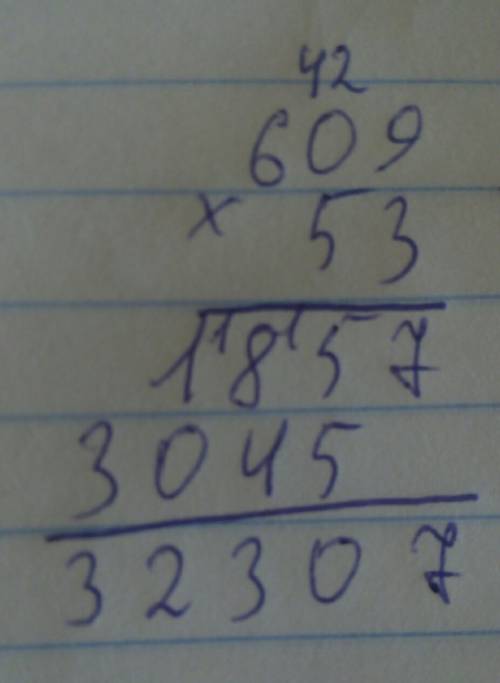 42
609
× 53
1857
3045
32307